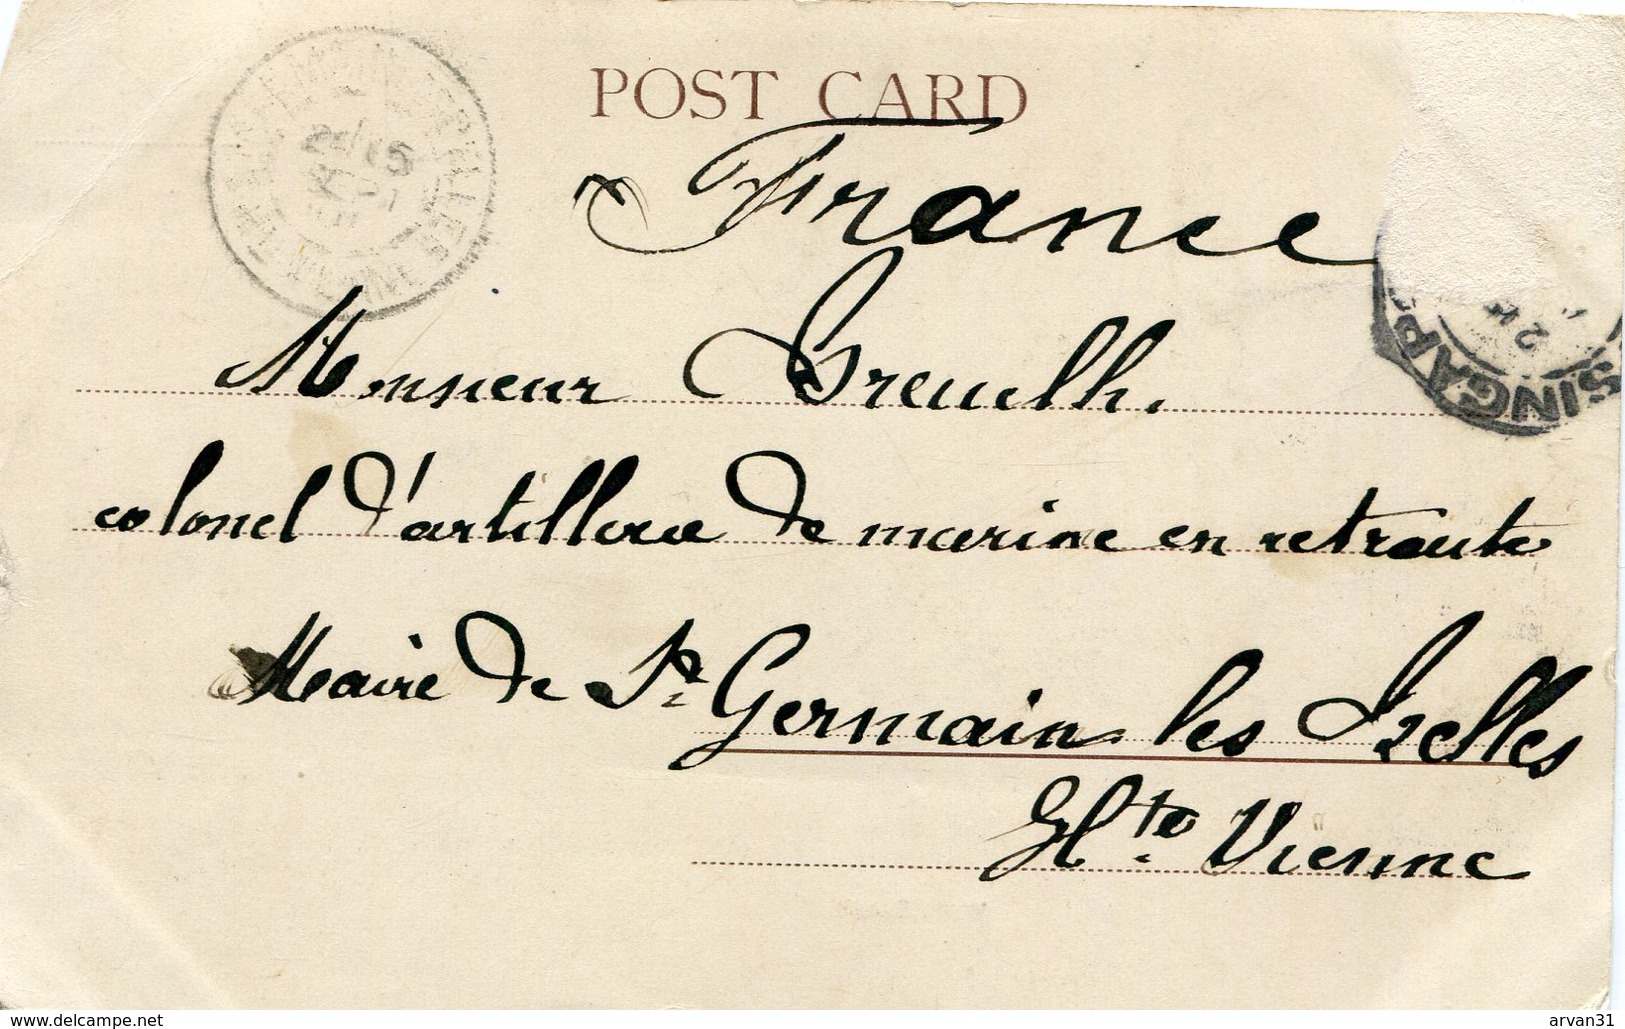 POST CARD
France
Monsieur Breuilh.
colonel d'artillerie de marine en retraite
Maire de St. Germain les Belles
Hte. Vienne
SINGAP
www.delcampe.net
arvan31